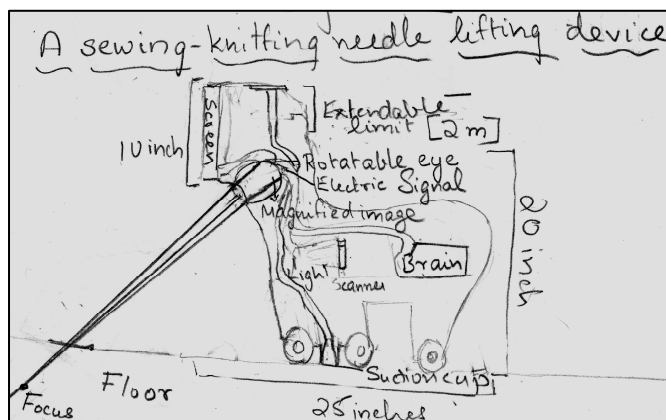 A sewing-knitting needle lifting device
Screen
10 inch
Extendable
limit [2m]
Rotatable eye
Electric Signal
Magnified image
20 inch
Light
Scanner
Brain
Suction cup
Floor
Focus
25 inches